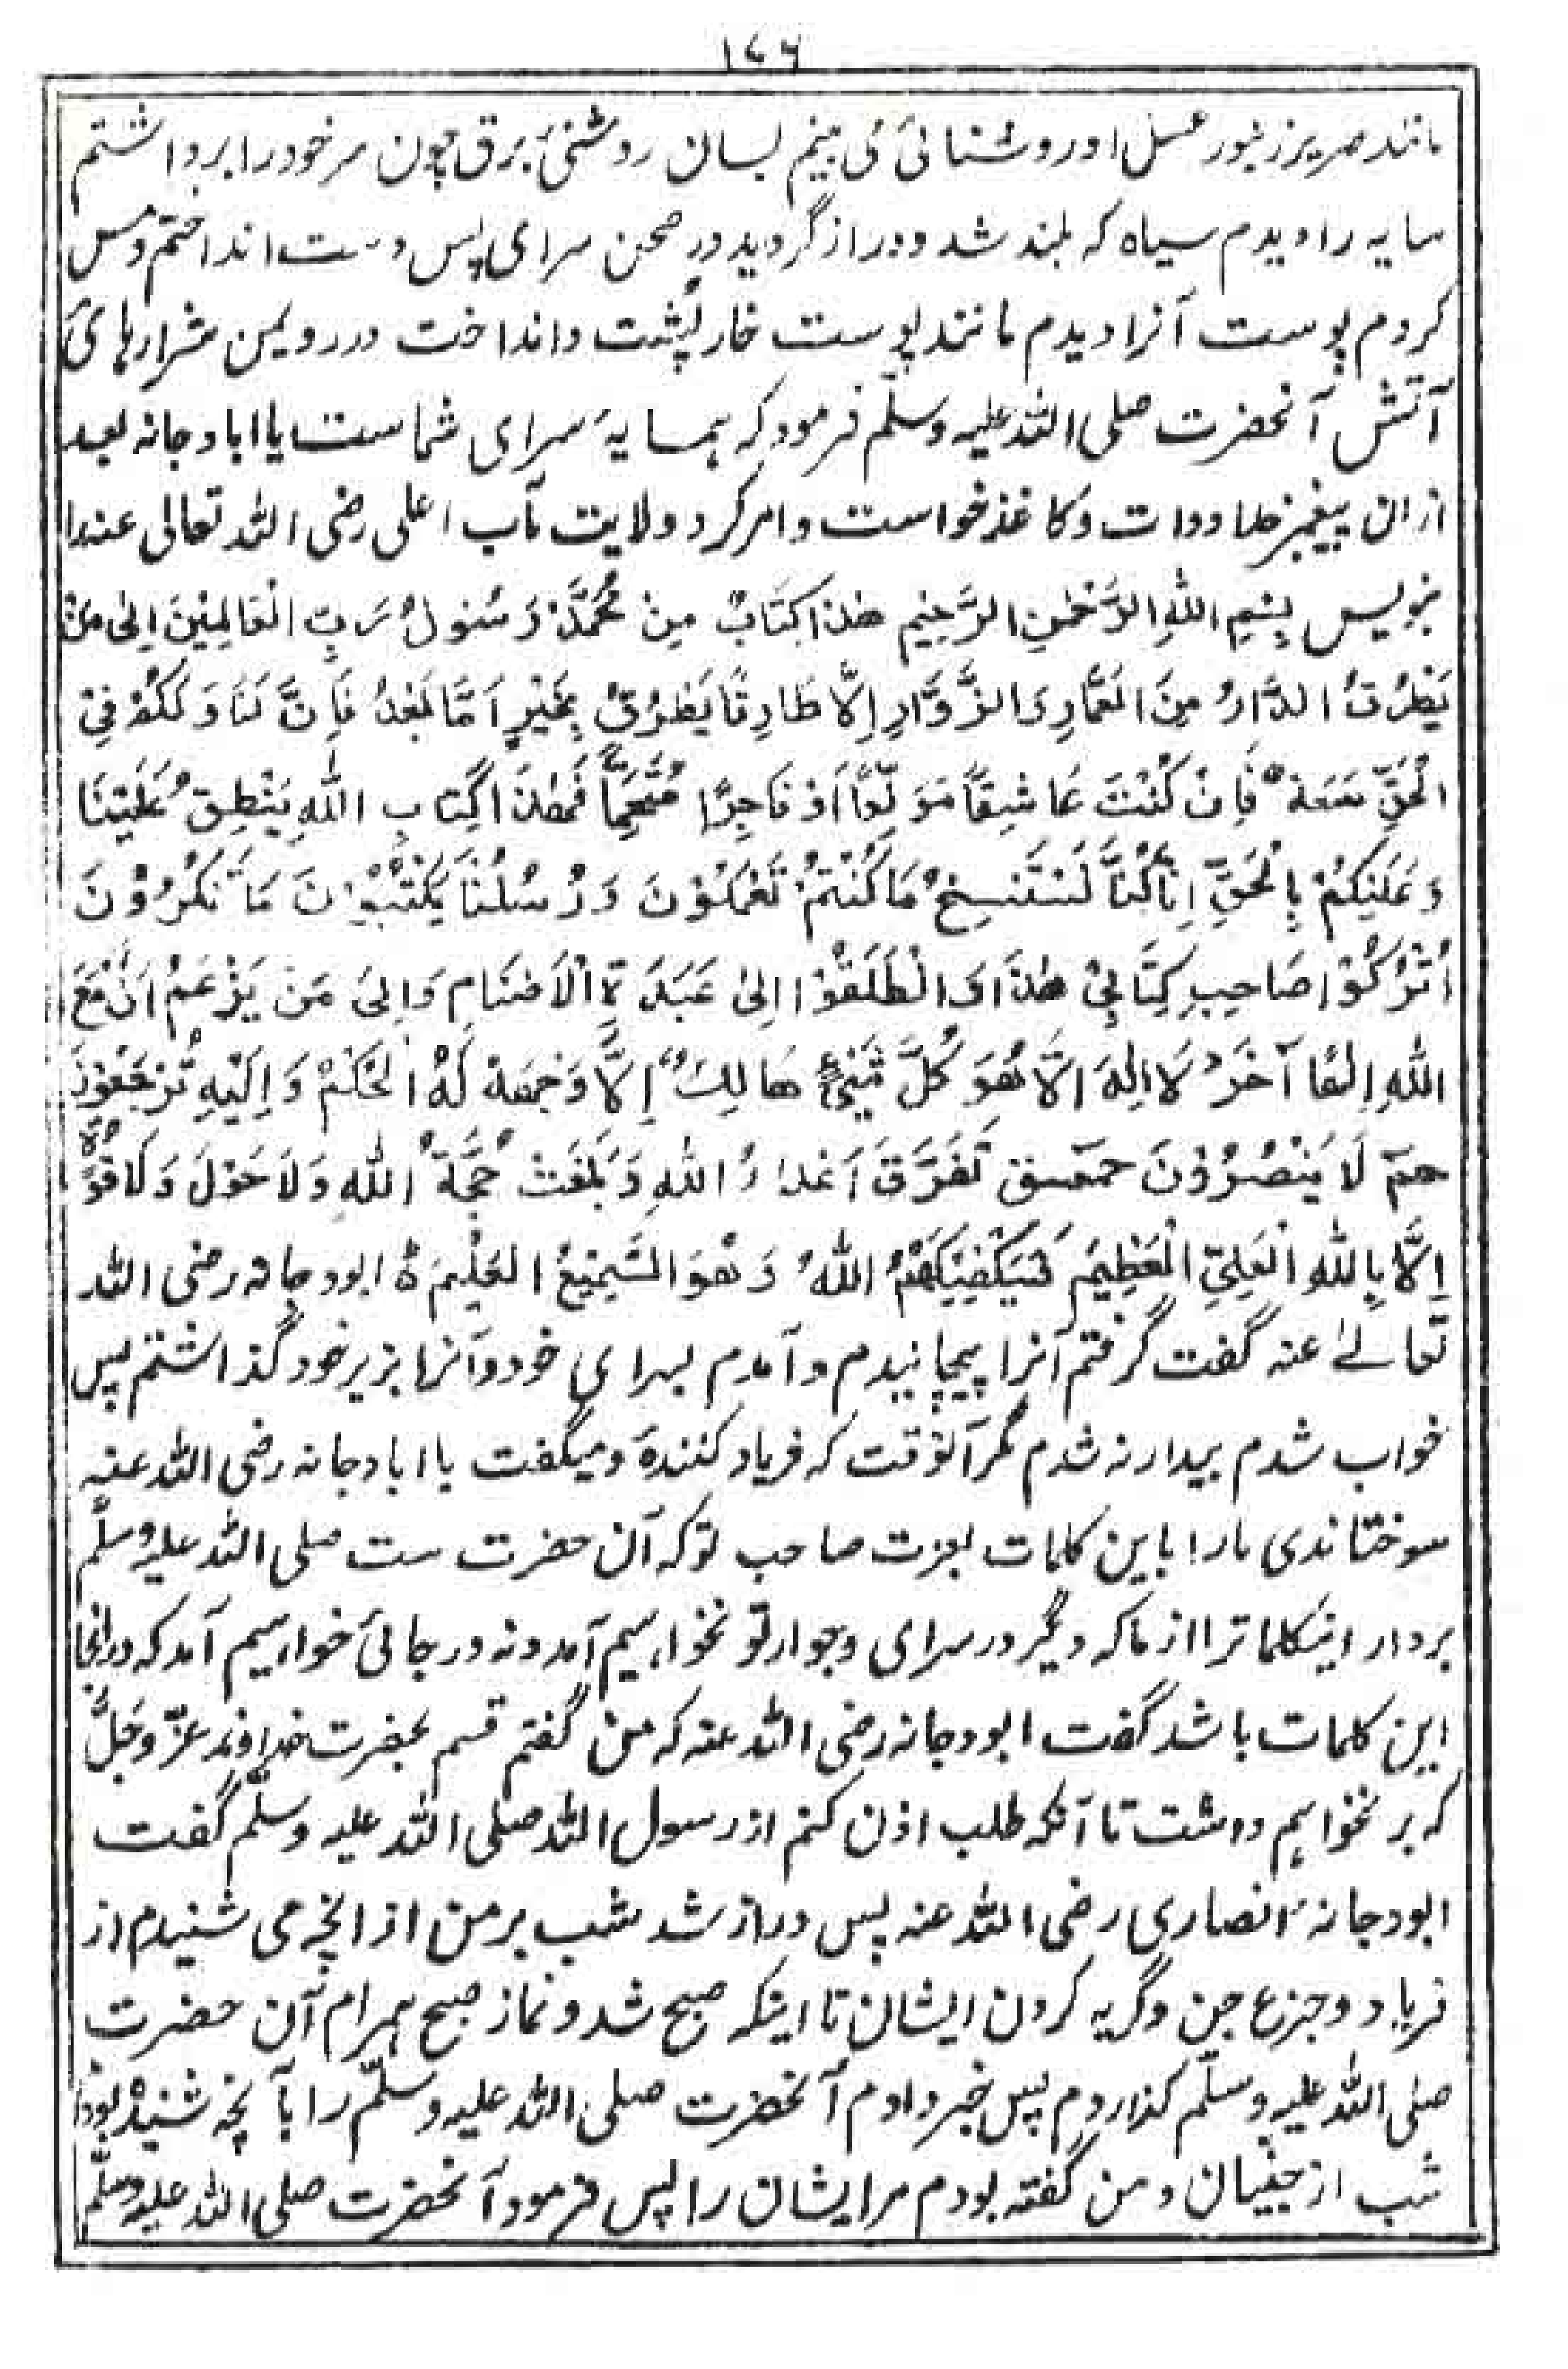 ۱۷۶
مانند صریر زنبور عسل اورو شنائی ئی بینم بسان روشنئ برق چون سر خود را برداشتم
سایه را دیدم سیاه که بلند شد و دراز گردید در صحن سرای پس دست انداختم و مس
کردم پوست آنرا دیدم مانند پوست خارپُشت و انداخت در رویمن شرارهای
آتش آنحضرت صلی الله علیه وسلّم فرمود که همسایهٔ سرای شماست یا ابا دجانه بعد
از ان پیغمبر خدا دوات و کاغذ خواست و امر کرد ولایت مآب اعلی رضی الله تعالی عنه را
بنویس بِسْمِ اللهِ الرَّحْمٰنِ الرَّحِیْمِ هٰذَا کِتَابٌ مِنْ مُحَمَّدٍ رَسُوْلُ رَبِّ الْعَالَمِیْنَ اِلٰی مَنْ
یَطْرُقُ الدَّارُ مِنَ الْعُمَّارِ وَالزُّوَّارِ اِلَّا طَارِقًا یَطْرُقُ بِخَیْرٍ اَمَّا بَعْدُ فَاِنَّ لَنَا وَلَکُمْ فِیْ
الْحَقِّ سَعَةً فَاِنْ کُنْتَ عَاشِقًا مُوَلِّعًا اَوْ فَاجِرًا مُتَّهِمًا فَهٰذَا کِتَابِ اللهِ یَنْطِقُ عَلَیْنَا
وَ عَلَیْکُمْ بِالْحَقِّ اِنَّا کُنَّا نَسْتَنْسِخُ مَا کُنْتُمْ تَعْمَلُوْنَ وَ رُسُلُنَا یَکْتُبُوْنَ مَا تَمْکُرُوْنَ
اُتْرُکُوْا صَاحِبِ کِتَابِیْ هٰذَا وَ انْطَلِقُوْا اِلٰی عَبَدَةِ الْاَصْنَامِ وَ اِلیَ مَنْ یَزْعَمُ اَنَّ مَعَ
اللهِ اِلٰهًا آخَرَ لَا اِلٰهَ اِلَّا هُوَ کُلُّ شَیْئٍ هَالِكٌ اِلَّا وَجْهَهٗ لَهُ الْحُکْمُ وَ اِلَیْهِ تُرْجَعُوْنَ
حٰمٓ لَا یُنْصَرُوْنَ حمٓعٓسٓقٓ تَفَرَّقَ اَعْدَاءُ اللهِ وَ بَلَغَتْ حُجَّةُ اللهِ وَ لَا حَوْلَ وَ لَا قُوَّةَ
اِلَّا بِاللهِ الْعَلِیِّ الْعَظِیْمِ فَسَیَکْفِیْکَهُمُ اللهُ وَ هُوَ السَّمِیْعُ الْعَلِیْمُ ابودجانه رضی الله
تعالےٰ عنه گفت گرفتم آنرا پیچانیدم و آمدم بسرای خود و آنرا بزیر خود گذاشتم پس
خواب شدم بیدار نه شدم مگر آنوقت که فریاد کنندهٔ و میگفت یا ابا دجانه رضی الله عنه
سوختاندی مارا باین کلمات بعزت صاحب تو که آن حضرت ست صلی الله علیه وسلّم
بردار اینکلمات را از ما که دیگر در سرای و جوار تو نخواهیم آمد و نه در جائی خواهیم آمد که درانجا
این کلمات باشد گفت ابودجانه رضی الله عنه که من گفتم قسم بحضرت خداوند عزّ وجلّ
که بر نخواهم داشت تا آنکه طلب اذن کنم از رسول الله صلی الله علیه وسلّم گفت
ابودجانهٔ انصاری رضی الله عنه پس دراز شد شب بر من از انچه می شنیدم از
فریاد و جزع جن و گریه کردن ایشان تا اینکه صبح شد و نماز صبح همراه آن حضرت
صلی الله علیه وسلّم گذاردم پس خبر دادم آنحضرت صلی الله علیه وسلّم را بآنچه شنیده بودم
شب از جنیان و من گفته بودم مر ایشان را پس فرمود آنحضرت صلی الله علیه وسلّم